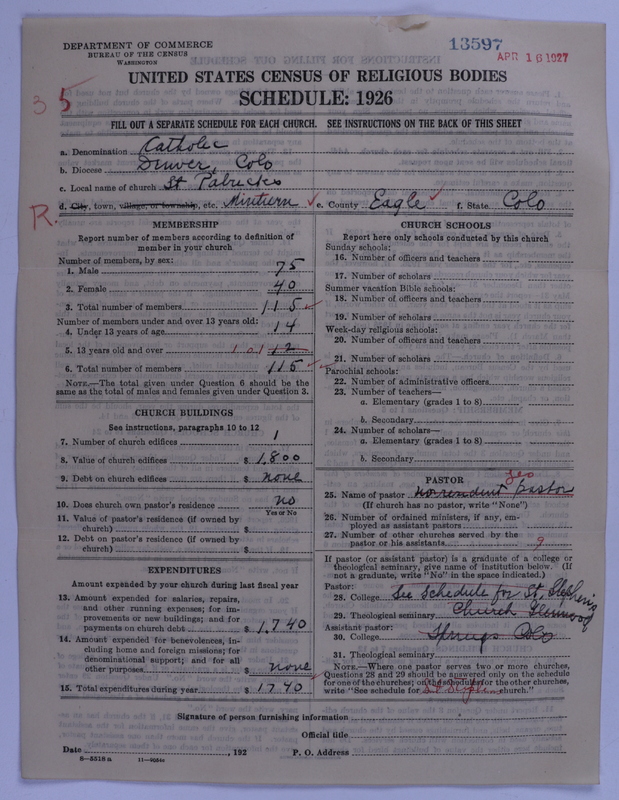 DEPARTMENT OF COMMERCE
BUREAU OF THE CENSUS
WASHINGTON
13597
APR 16 1927
UNITED STATES CENSUS OF RELIGIOUS BODIES
SCHEDULE: 1926
35
FILL OUT A SEPARATE SCHEDULE FOR EACH CHURCH. SEE INSTRUCTIONS ON THE BACK OF THIS SHEET
a. Denomination Catholic
b. Diocese Denver, Colo
c. Local name of church St Patricks
R.
d. City, town, village, or township, etc. Minturn e. County Eagle f. State Colo
MEMBERSHIP
Report number of members according to definition of
member in your church
Number of members, by sex:
1. Male 75
2. Female 40
3. Total number of members 115
Number of members under and over 13 years old:
4. Under 13 years of age 14
5. 13 years old and over 101 12
6. Total number of members 115
NOTE.—The total given under Question 6 should be the
same as the total of males and females given under Question 3.
CHURCH BUILDINGS
See instructions, paragraphs 10 to 12
7. Number of church edifices 1
8. Value of church edifices $ 1,800
9. Debt on church edifices $ none
10. Does church own pastor's residence no
Yes or No
11. Value of pastor's residence (if owned by
church) $
12. Debt on pastor's residence (if owned by
church) $
EXPENDITURES
Amount expended by your church during last fiscal year
13. Amount expended for salaries, repairs,
and other running expenses; for im-
provements or new buildings; and for
payments on church debt $ 1,740
14. Amount expended for benevolences, in-
cluding home and foreign missions; for
denominational support; and for all
other purposes $ none
15. Total expenditures during year $ 1740
CHURCH SCHOOLS
Report here only schools conducted by this church
Sunday schools:
16. Number of officers and teachers
17. Number of scholars
Summer vacation Bible schools:
18. Number of officers and teachers
19. Number of scholars
Week-day religious schools:
20. Number of officers and teachers
21. Number of scholars
Parochial schools:
22. Number of administrative officers
23. Number of teachers—
a. Elementary (grades 1 to 8)
b. Secondary
24. Number of scholars—
a. Elementary (grades 1 to 8)
b. Secondary
PASTOR
25. Name of pastor no resident pastor
(If church has no pastor, write "None")
26. Number of ordained ministers, if any, em-
ployed as assistant pastors
27. Number of other churches served by the
pastor or his assistants 9
If pastor (or assistant pastor) is a graduate of a college or
theological seminary, give name of institution below. (If
not a graduate, write "No" in the space indicated.)
Pastor:
28. College See Schedule for St. Stephen's
29. Theological seminary Church Glenwood
Assistant pastor:
30. College Springs Colo
31. Theological seminary
NOTE.—Where one pastor serves two or more churches,
Questions 28 and 29 should be answered only on the schedule
for one of the churches; on the schedules for the other churches,
write "See schedule for St. Stephen church."
Signature of person furnishing information
Official title
Date , 192 P. O. Address
8—5518 a 11—9054